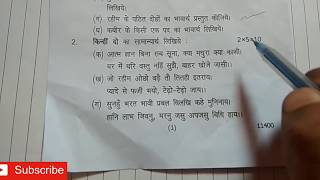 लिखिये।
(ग) रहीम के पठित दोहों का भावार्थ प्रस्तुत कीजिये।
(घ) कबीर के किसी एक पद का भावार्थ लिखिये।
2. किन्हीं दो का सामान्यार्थ लिखिये 2×5=10
(क) आत्म ज्ञान बिना सब सूना, क्या मथुरा क्या कासी।
घर में वरि वस्तु नहिं सूझै, बाहर खोजे जासी।।
(ख) जो रहीम ओछो बढ़ै तौ तितही इतराय।
प्यादे से फर्जी भयो, टेढ़ो-टेढ़ो जाय।।
(ग) सुनहुँ भरत भावी प्रबल बिलखि कहे मुनिनाथ।
हानि लाभ जिवनु, मरनु जसु अपजसु बिधि हाथ।।
(1)
11400
Subscribe